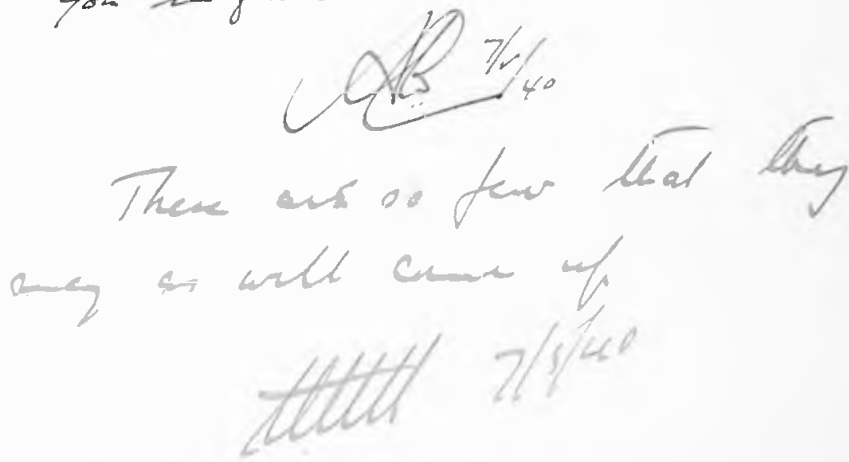 you
AB 7/5/40
These are so few that they
may as well come up
7/5/40